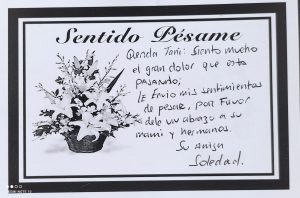 Sentido Pésame
Querida Toñi: Siento mucho
el gran dolor que esta
pasando;
le Envio mis sentimientos
de pesar, por Favor
dele un abrazo a su
mami y hermanas.
Su amiga
Soledad.